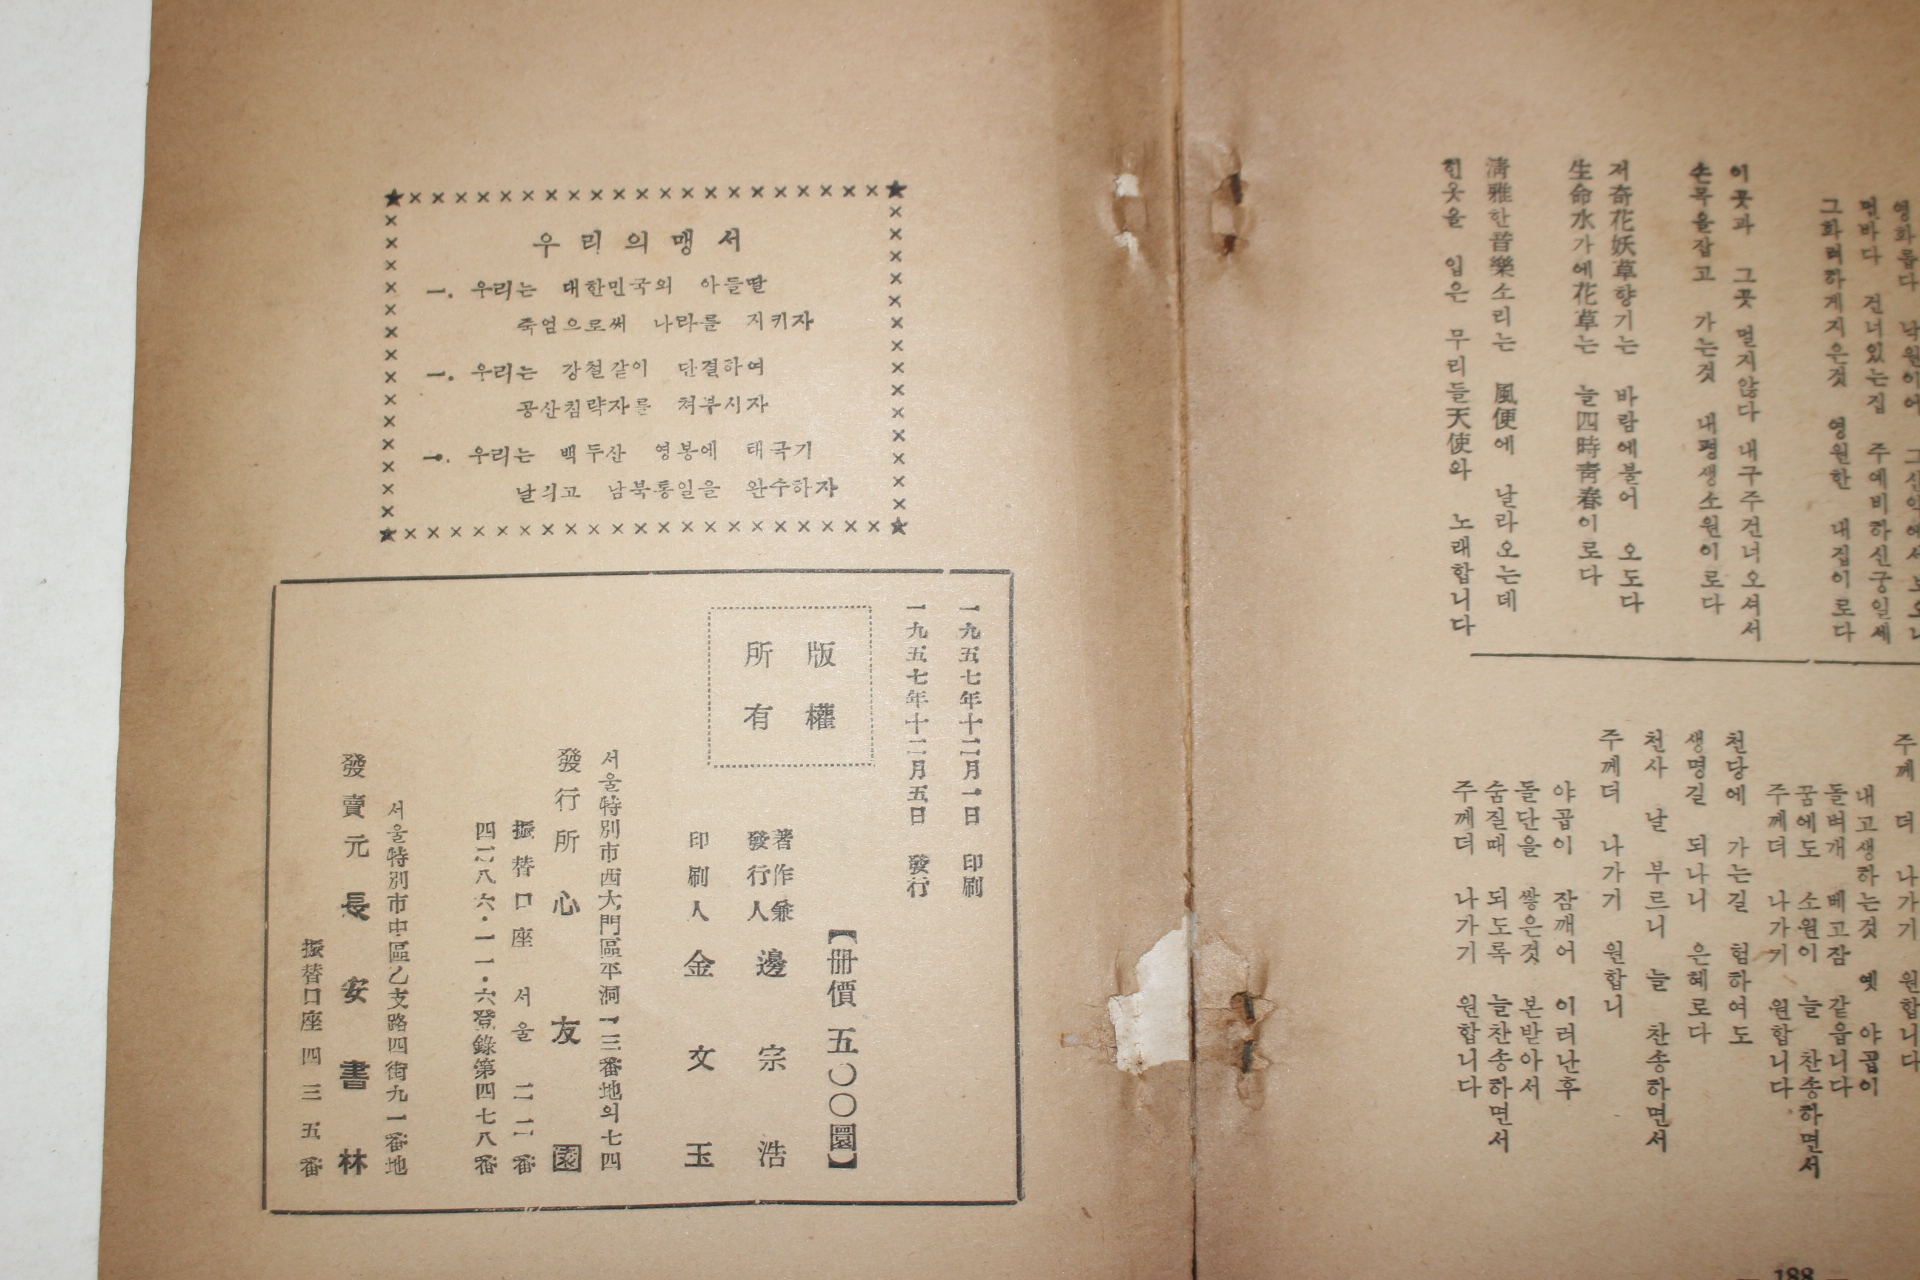 영화롭다 낙원이어
먼바다 건너있는집 주예비하신궁일세
그화려하게지은것 영원한 내집이로다
이곳과 그곳 멀지않다 내구주건너오셔서
손목을잡고 가는것 내평생소원이로다
저奇花妖草향기는 바람에불어 오도다
生命水가에花草는 늘四時靑春이로다
淸雅한音樂소리는 風便에 날라오는데
흰옷을 입은 무리들天使와 노래합니다
주께 더 나가기 원합니다
내고생하는것 옛 야곱이
돌벼개 베고잠 같읍니다
꿈에도 소원이 늘 찬송하면서
주께더 나가기 원합니다
천당에 가는길 험하여도
생명길 되나니 은혜로다
천사 날 부르니 늘 찬송하면서
주께더 나가기 원합니
야곱이 잠깨어 이러난후
돌단을 쌓은것 본받아서
숨질때 되도록 늘찬송하면서
주께더 나가기 원합니다
188
우리의맹서
一. 우리는 대한민국의 아들딸
죽엄으로써 나라를 지키자
一. 우리는 강철같이 단결하여
공산침략자를 처부시자
一. 우리는 백두산 영봉에 태극기
날리고 남북통일을 완수하자
一九五七年十二月一日 印刷
一九五七年十二月五日 發行
版權
所有
【册價 五〇〇圜】
著作兼
發行人 邊宗浩
印刷人 金文玉
서울特別市西大門區平洞一三番地의七四
發行所 心友園
振替口座 서울 二一二番
四二八六・一一・六登錄第四七八番
서울特別市中區乙支路四街九一番地
發賣元 長安書林
振替口座四三五番